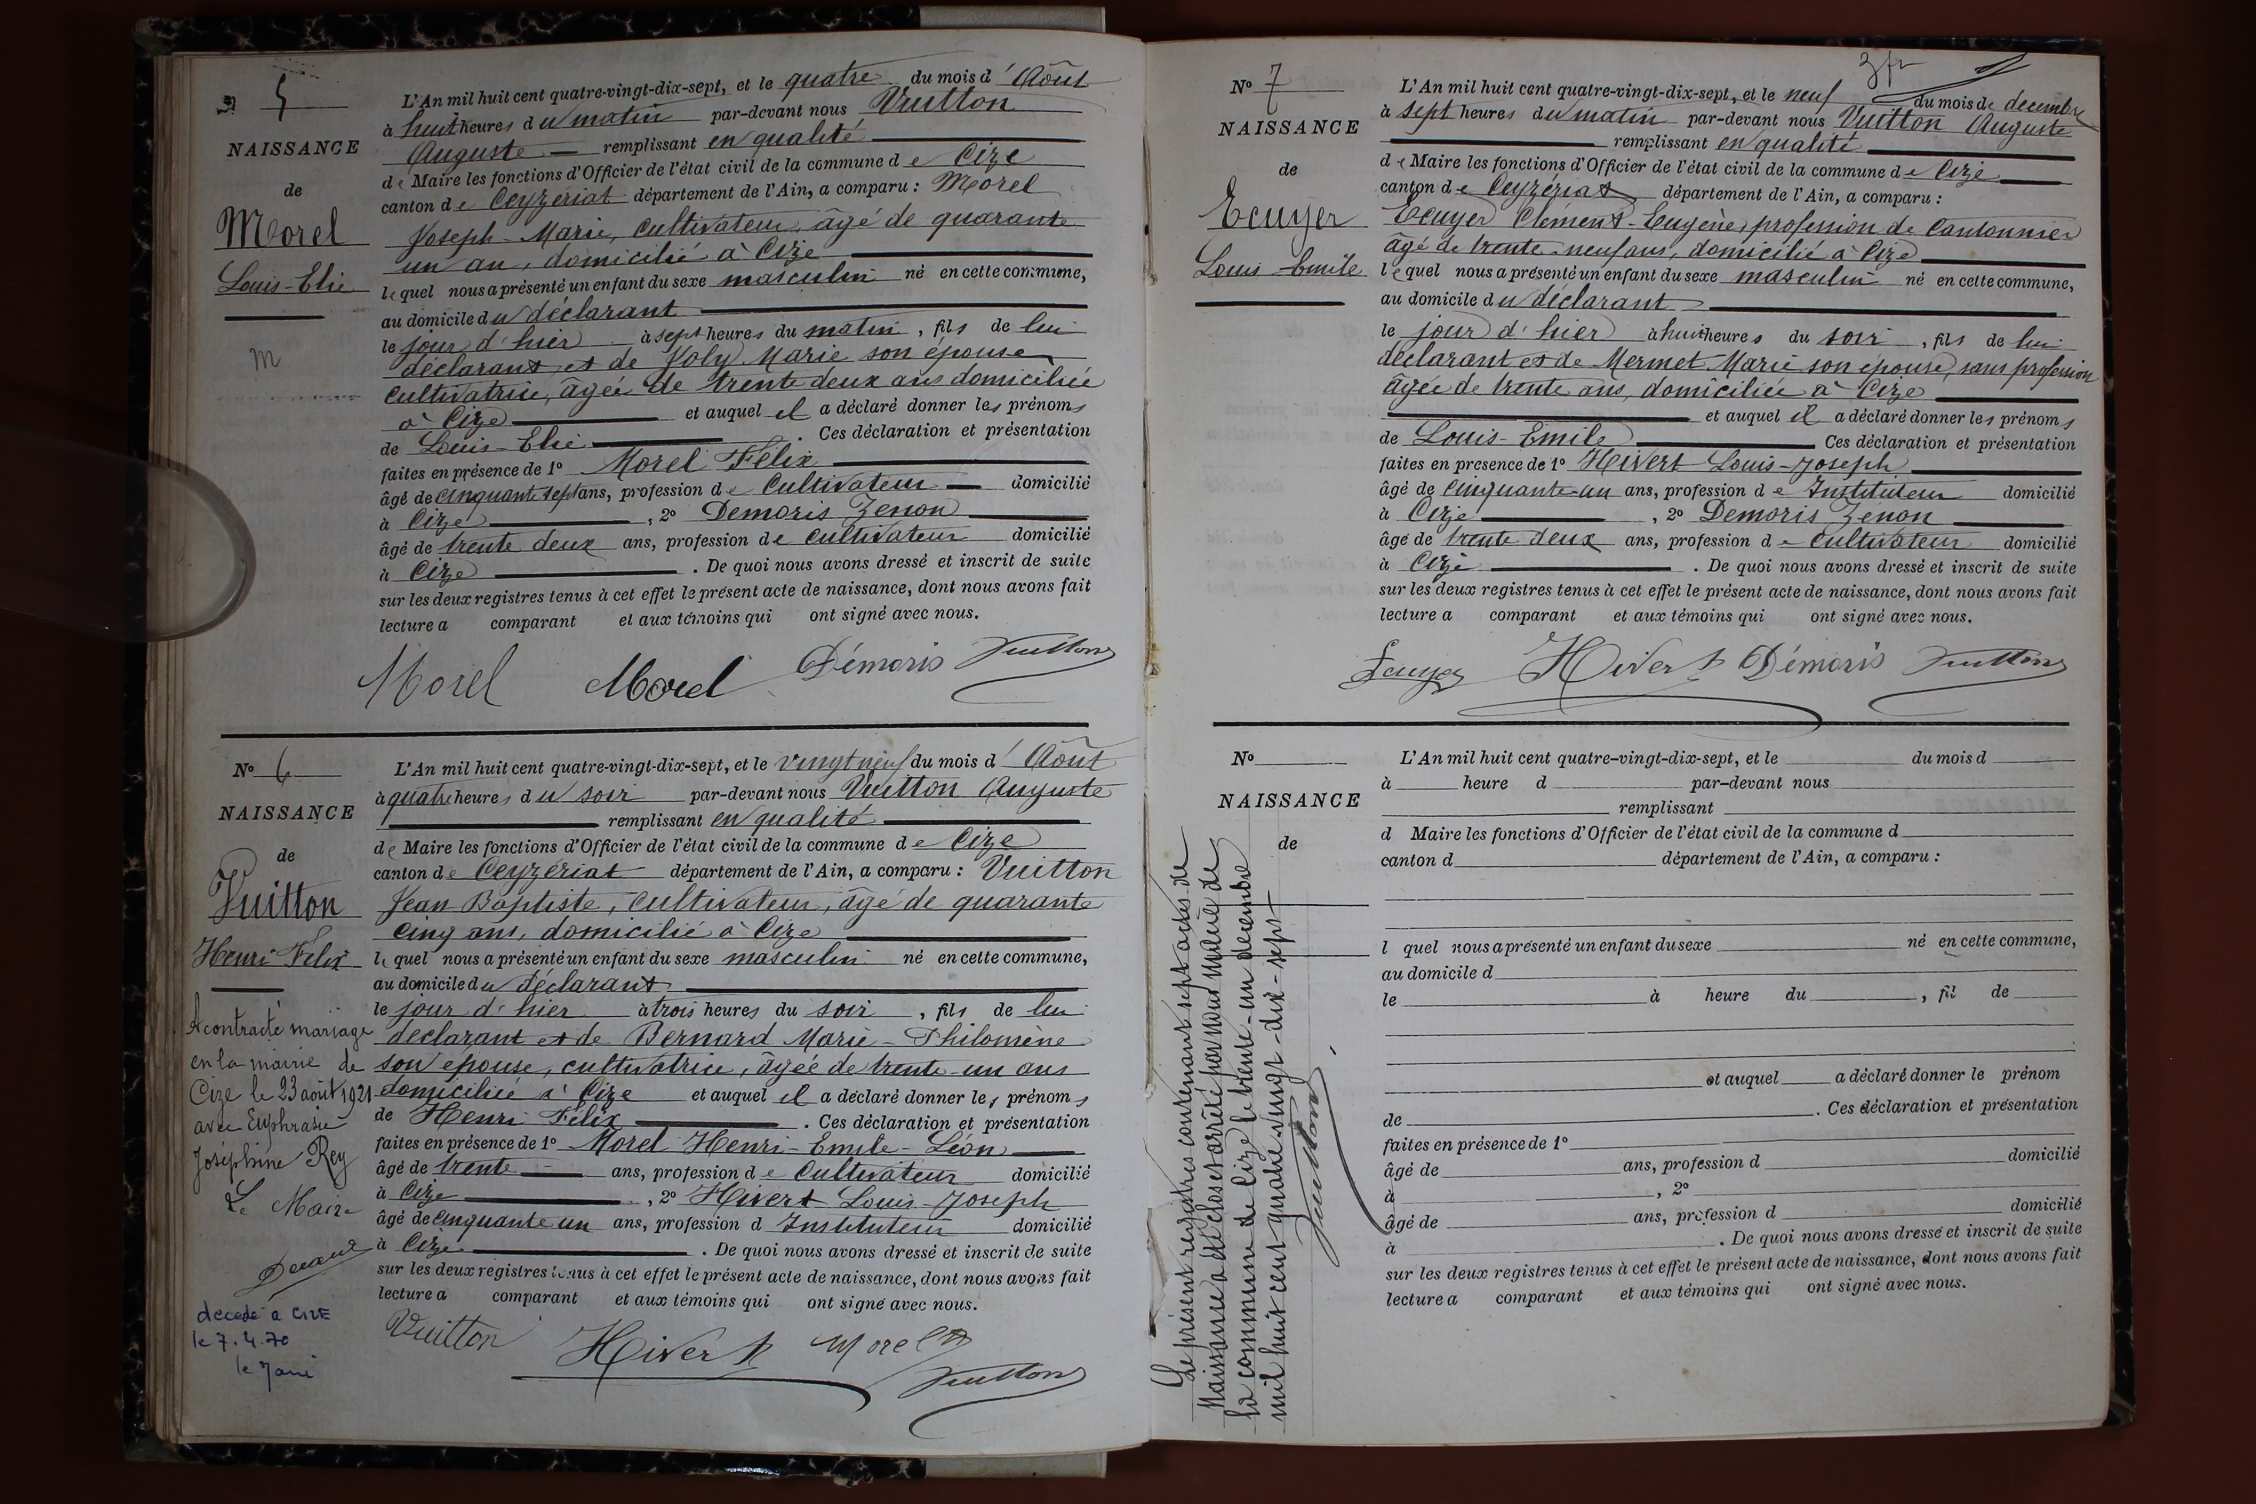 N° 5
NAISSANCE
de
Morel
Louis-Elie
M
L'An mil huit cent quatre-vingt-dix-sept, et le quatre du mois d'Août
à huit heures du matin par-devant nous Vuitton
Auguste — remplissant en qualité
de Maire les fonctions d'Officier de l'état civil de la commune de Cize
canton de Ceyzériat département de l'Ain, a comparu : Morel
Joseph-Marie, cultivateur, âgé de quarante
un an, domicilié à Cize
lequel nous a présenté un enfant du sexe masculin né en cette commune,
au domicile du déclarant
le jour d'hier à sept heures du matin, fils de lui
déclarant et de Joly Marie son épouse
cultivatrice, âgée de trente deux ans domiciliée
à Cize et auquel il a déclaré donner les prénoms
de Louis-Elie . Ces déclaration et présentation
faites en présence de 1° Morel Félix
âgé de cinquante sept ans, profession de Cultivateur — domicilié
à Cize , 2° Demoris Zenon
âgé de trente deux ans, profession de cultivateur domicilié
à Cize . De quoi nous avons dressé et inscrit de suite
sur les deux registres tenus à cet effet le présent acte de naissance, dont nous avons fait
lecture a comparant et aux témoins qui ont signé avec nous.
Morel Morel Démoris Vuitton
N° 6
NAISSANCE
de
Vuitton
Henri Félix
A contracté mariage
en la mairie de
Cize le 23 août 1921
avec Euphrasie
Joséphine Rey
Le Maire
décédé à CIZE
le 7.4.70
L'An mil huit cent quatre-vingt-dix-sept, et le vingt neuf du mois d'Août
à quatre heures du soir par-devant nous Vuitton Auguste
remplissant en qualité
de Maire les fonctions d'Officier de l'état civil de la commune de Cize
canton de Ceyzériat département de l'Ain, a comparu : Vuitton
Jean Baptiste, cultivateur, âgé de quarante
cinq ans, domicilié à Cize
lequel nous a présenté un enfant du sexe masculin né en cette commune,
au domicile du déclarant
le jour d'hier à trois heures du soir, fils de lui
déclarant et de Bernard Marie-Philomène
son épouse, cultivatrice, âgée de trente-un ans
domiciliée à Cize et auquel il a déclaré donner les prénoms
de Henri Félix . Ces déclaration et présentation
faites en présence de 1° Morel Henri-Emile-Léon
âgé de trente — ans, profession de Cultivateur domicilié
à Cize , 2° Hivert Louis-Joseph
âgé de cinquante un ans, profession d Instituteur domicilié
à Cize . De quoi nous avons dressé et inscrit de suite
sur les deux registres tenus à cet effet le présent acte de naissance, dont nous avons fait
lecture a comparant et aux témoins qui ont signé avec nous.
Vuitton Hivert Morel Vuitton
N° 7
NAISSANCE
de
Ecuyer
Louis-Emile
L'An mil huit cent quatre-vingt-dix-sept, et le neuf du mois de décembre
à sept heures du matin par-devant nous Vuitton Auguste
remplissant en qualité
de Maire les fonctions d'Officier de l'état civil de la commune de Cize
canton de Ceyzériat département de l'Ain, a comparu :
Ecuyer Clément-Eugène, profession de Cantonnier
âgé de trente-neuf ans, domicilié à Cize
lequel nous a présenté un enfant du sexe masculin né en cette commune,
au domicile du déclarant
le jour d'hier à huit heures du soir, fils de lui
déclarant et de Mermet Marie son épouse, sans profession
âgée de trente ans, domiciliée à Cize
et auquel il a déclaré donner les prénoms
de Louis-Emile Ces déclaration et présentation
faites en présence de 1° Hivert Louis-Joseph
âgé de cinquante-un ans, profession de Instituteur domicilié
à Cize , 2° Demoris Zenon
âgé de trente deux ans, profession de Cultivateur domicilié
à Cize . De quoi nous avons dressé et inscrit de suite
sur les deux registres tenus à cet effet le présent acte de naissance, dont nous avons fait
lecture a comparant et aux témoins qui ont signé avec nous.
Ecuyer Hivert Démoris Vuitton
N°
NAISSANCE
de
Le présent registre contenant sept actes de
Naissance a été clos et arrêté par nous maire de
la commune de Cize le trente-un décembre
mil huit cent quatre-vingt-dix-sept
Vuitton
L'An mil huit cent quatre-vingt-dix-sept, et le du mois d
à heure d par-devant nous
remplissant
d Maire les fonctions d'Officier de l'état civil de la commune d
canton d département de l'Ain, a comparu :
l quel nous a présenté un enfant du sexe né en cette commune,
au domicile d
le à heure du , fil de
et auquel a déclaré donner le prénom
de . Ces déclaration et présentation
faites en présence de 1°
âgé de ans, profession d domicilié
à , 2°
âgé de ans, profession d domicilié
à . De quoi nous avons dressé et inscrit de suite
sur les deux registres tenus à cet effet le présent acte de naissance, dont nous avons fait
lecture a comparant et aux témoins qui ont signé avec nous.